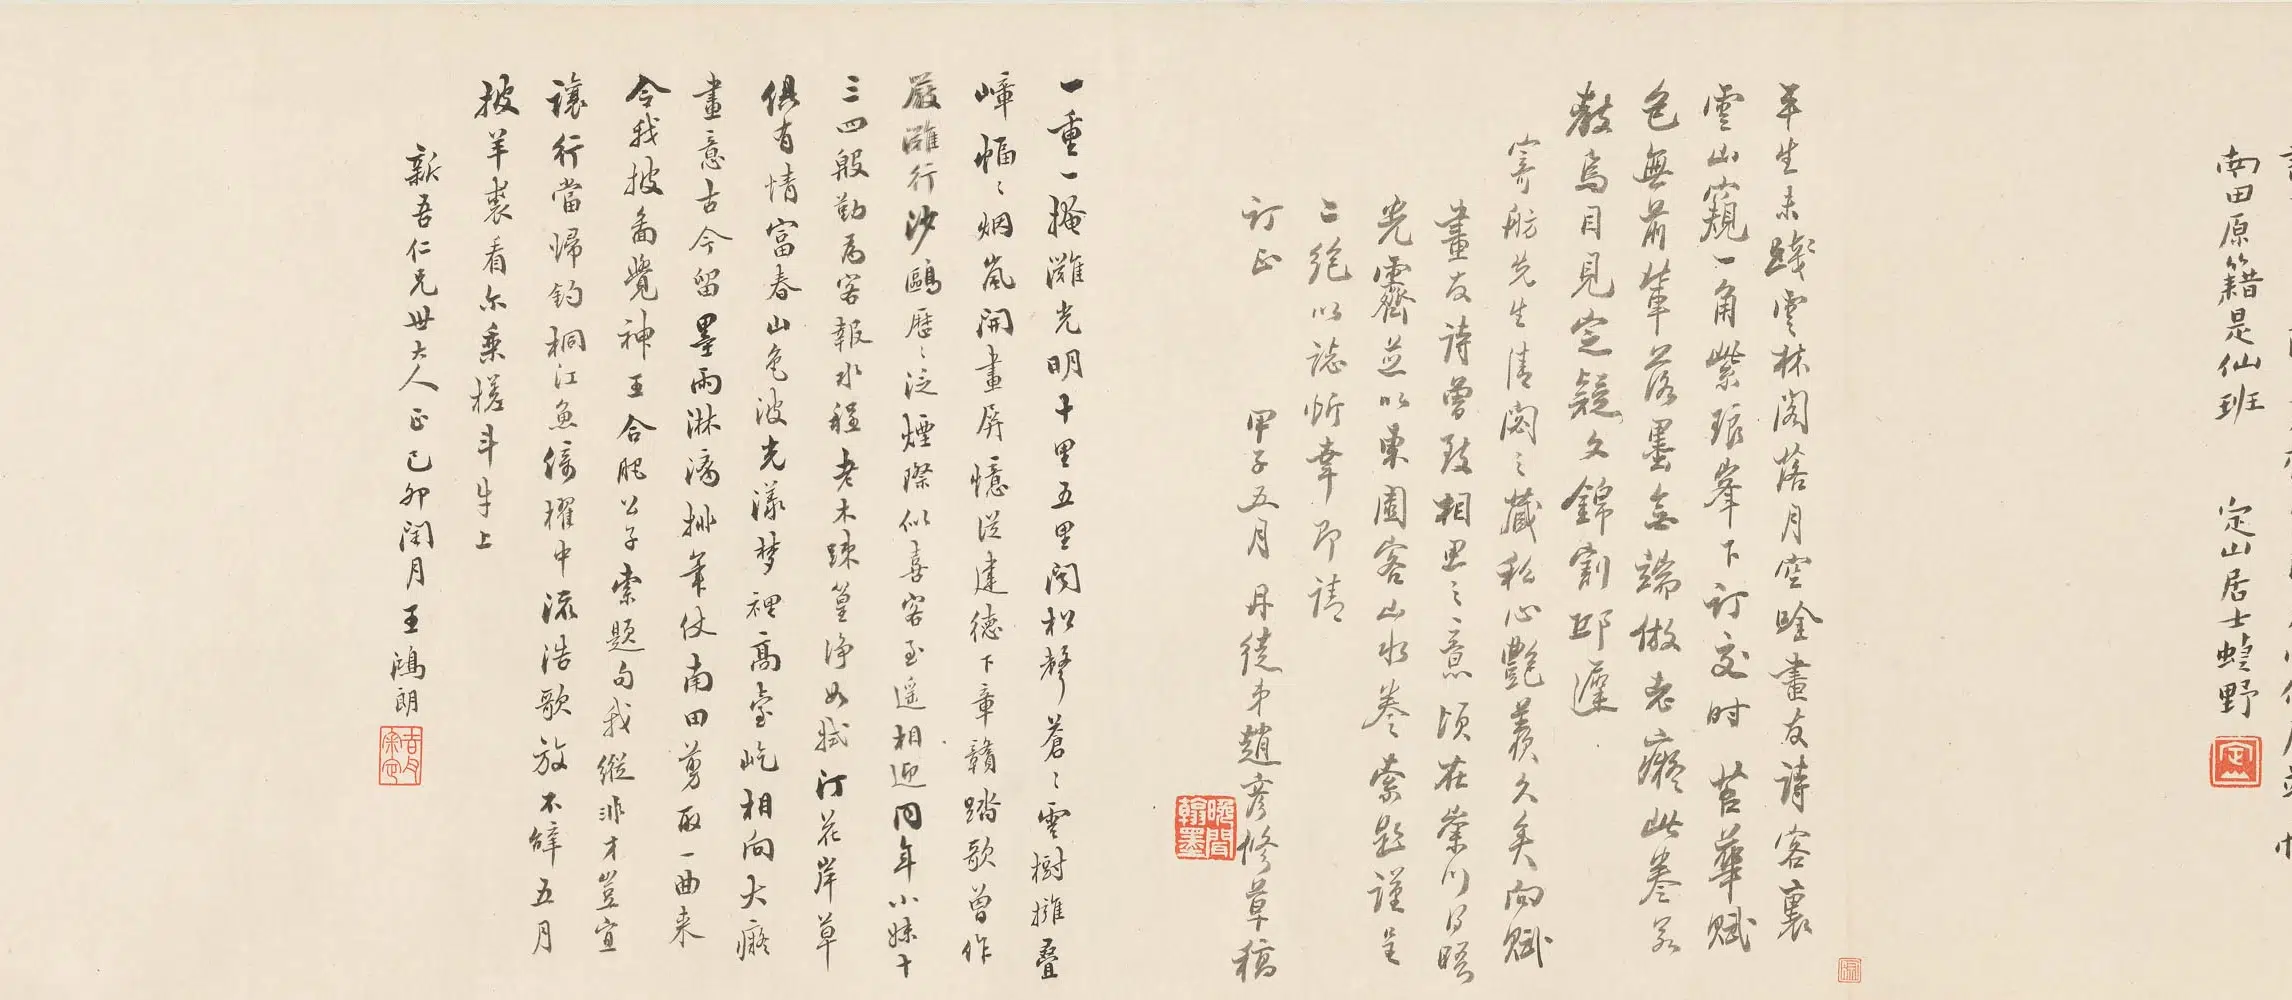 南田原籍是仙班　定山居士蝶野
定山
平生未踐雲林閣落月空唫畫友詩客裏
雲山窺一角紫琅峯下訂交時　苕華賦
色無前輩落墨無端倣老癡此卷若
教烏目見定疑文錦割邱遲
寄舫先生清閟閟藏私心艷羡久矣向賦
畫友詩曾致相思之意頃在崇川得晤
光霽並以東園客山水卷索題謹呈
二絕以誌忻幸即請
訂正　甲子五月丹徒弟趙彥修草稿
晚閒翰墨
一重一掩灘光明十里五里聞松聲蒼蒼雲樹擁疊
嶂幅幅烟嵐開畫屏憶從建德下章贛踏歌曾作
嚴灘行沙鷗歷歷泛煙際似喜客至遥相迎同年小妹十
三四殷勤為客報水程老木踈篁淨如拭汀花岸草
俱有情富春山色波光漾夢裡高臺屹相向大癡
畫意古今留墨雨淋漓排筆仗南田剪取一曲来
今我披圖覺神王合肥公子索題句我縱非才豈宜
讓行當歸釣桐江魚倚櫂中流浩歌放不辭五月
披羊裘看尔乘槎斗牛上
新吾仁兄世大人正己卯閏月王鴻朗